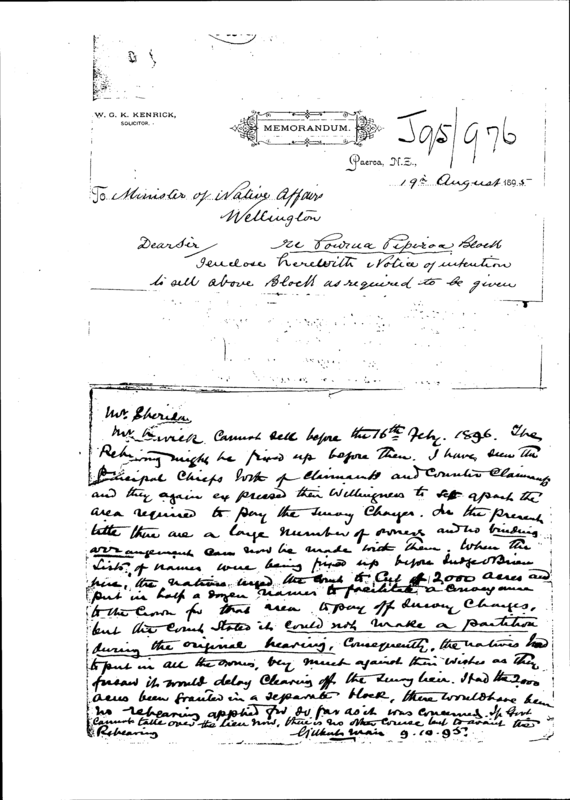 W. G. K. KENRICK,
SOLICITOR.
MEMORANDUM.
J95/976
Paeroa, N.Z.,
19th August 1895
To Minister of Native Affairs
Wellington
Dear Sir
re Pouria Piperoa Block
I enclose herewith Notice of intention
to sell above Block as required to be given
Mr. Sheridan
Mr. Kenrick cannot sell before the 16th Feby. 1896. The
Rehearing might be fixed up before then. I have seen the
Principal Chiefs both of Claimants and Counter Claimants
and they again expressed their willingness to set apart the
area required to pay the Survey Charges. In the present
title there are a large number of owners and no binding
arrangement can now be made with them. When the
Lists of names were being fixed up before Judge O'Brien
here, the natives urged the Court to Cut off 2,000 acres and
put in half a dozen names to facilitate a Conveyance
to the Crown for that area to pay off Survey Charges,
but the Court stated it could not make a partition
during the original hearing, Consequently, the natives had
to put in all the owners, very much against their wishes as they
foresaw it would delay Clearing off the Survey lien. Had the 2000
acres been granted in a separate block, there would have been
no rehearing applied for so far as it was concerned. If Govt
cannot take over the lien now, there is no other Course but to await the
Rehearing
Gilbert Mair 9.10.95.